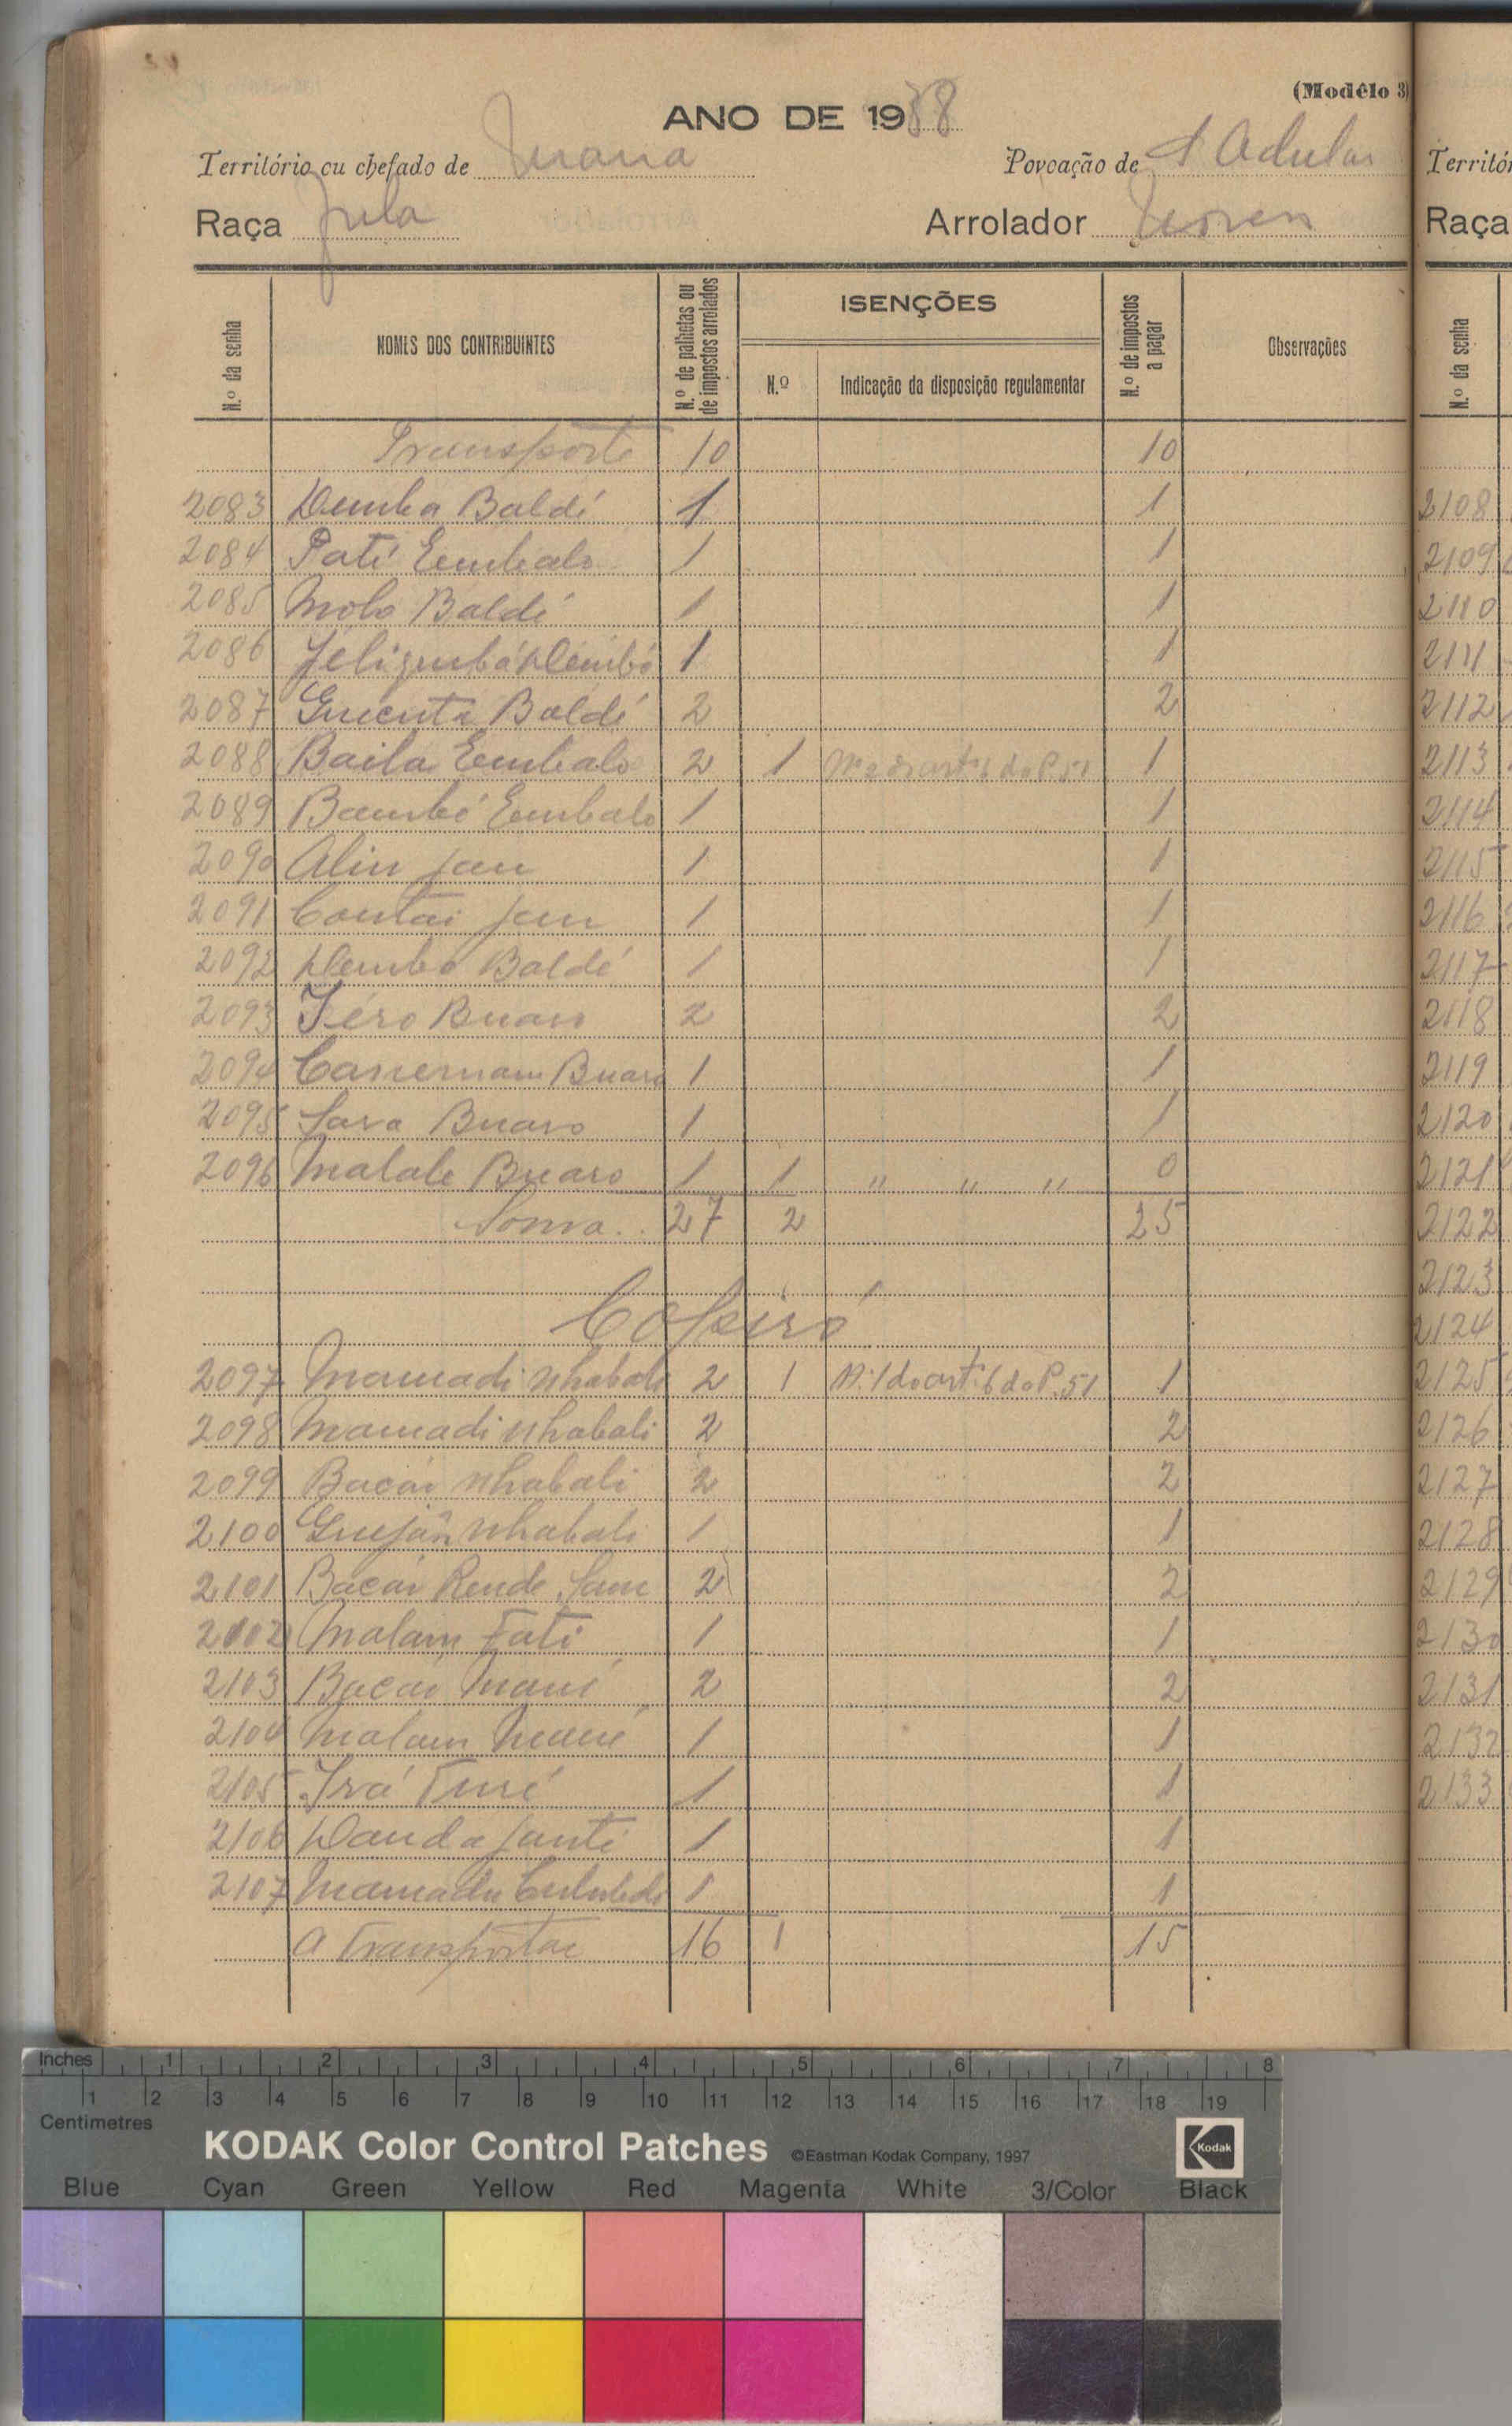 (Modêlo 3)
ANO DE 1938
Território ou chefado de
Povoação de
Raça Fula
Arrolador
N.º da senha
NOMES DOS CONTRIBUINTES
N.º de palhotas ou de impostos arrolados
ISENÇÕES
N.º
Indicação da disposição regulamentar
N.º de impostos a pagar
Observações
Transporte 10 10
2083 Demba Baldé 1 1
2084 Pati Embalo 1 1
2085 Molo Baldé 1 1
2086 1 1
2087 Baldé 2 2
2088 Baila Embalo 2 1 Nº 2 do artº 6 do P. 51 1
2089 Bambé Embalo 1 1
2090 Aliu 1 1
2091 1 1
2092 Demba Baldé 1 1
2093 Buaro 2 2
2094 Buaro 1 1
2095 Buaro 1 1
2096 Malale Buaro 1 1 " " " 0
Soma.. 27 2 25
2097 Mamadi Nhabali 2 1 Nº 1 do artº 6 do P. 51 1
2098 Mamadi Nhabali 2 2
2099 Bacar Nhabali 2 2
2100 Nhabali 1 1
2101 Bacar 2 2
2102 Malam Fati 1 1
2103 Bacar Mané 2 2
2104 Malam Mané 1 1
2105 Turé 1 1
2106 Dauda 1 1
2107 Mamadu 1 1
A Transportar 16 1 15
Territó
Raça
N.º da senha
2108
2109
2110
2111
2112
2113
2114
2115
2116
2117
2118
2119
2120
2121
2122
2123
2124
2125
2126
2127
2128
2129
2130
2131
2132
2133
Inches 1 2 3 4 5 6 7 8
1 2 3 4 5 6 7 8 9 10 11 12 13 14 15 16 17 18 19
Centimetres
KODAK Color Control Patches ©Eastman Kodak Company, 1997 Kodak
Blue Cyan Green Yellow Red Magenta White 3/Color Black